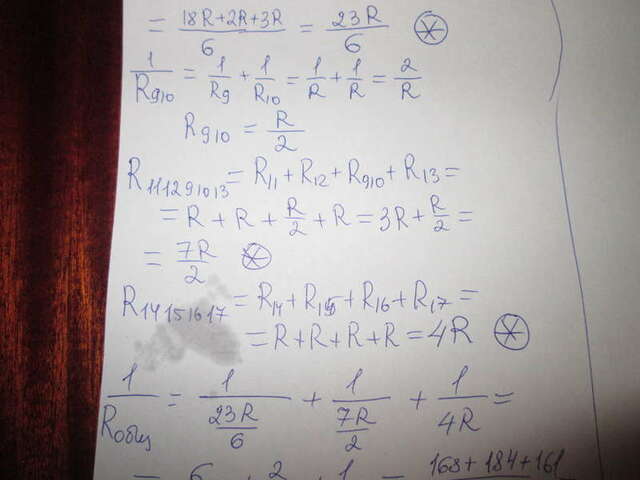 = (18R+2R+3R)/6 = 23R/6 ⊛
1/R₉₁₀ = 1/R₉ + 1/R₁₀ = 1/R + 1/R = 2/R
R₉₁₀ = R/2
R₁₁₁₂₉₁₀₁₃ = R₁₁ + R₁₂ + R₉₁₀ + R₁₃ =
= R + R + R/2 + R = 3R + R/2 =
= 7R/2 ⊛
R₁₄₁₅₁₆₁₇ = R₁₄ + R₁₅ + R₁₆ + R₁₇ =
= R + R + R + R = 4R ⊛
1/Rобщ = 1/(23R/6) + 1/(7R/2) + 1/4R =
= 6 2 1 = 168 + 184 + 161